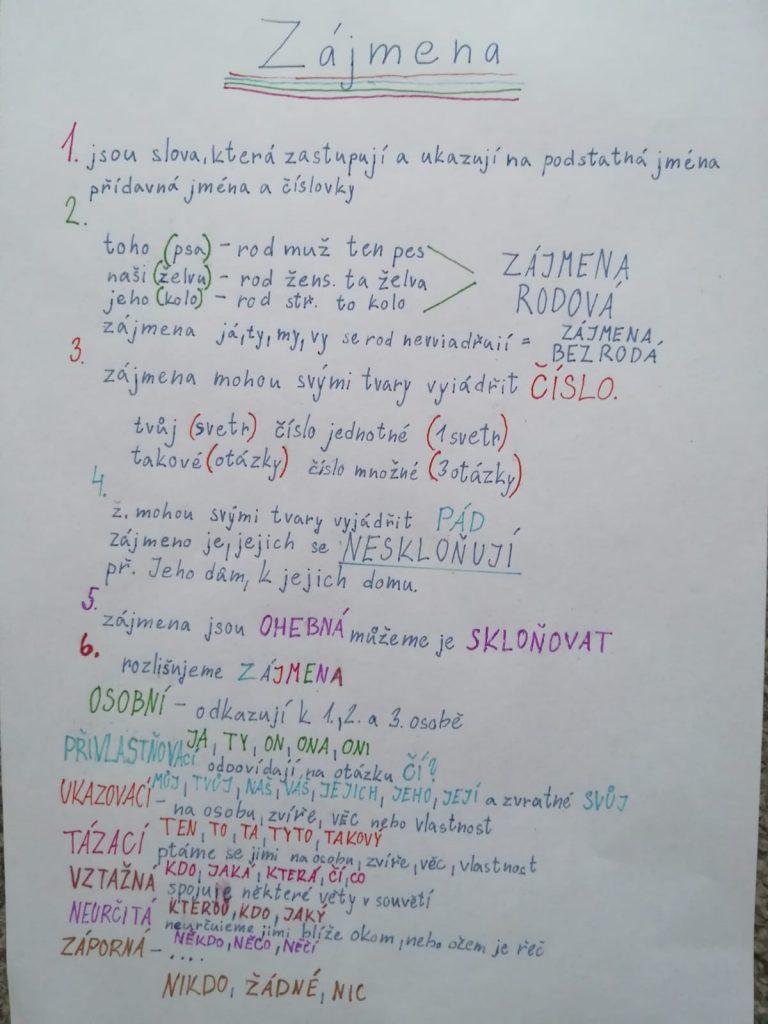 Zájmena
1. jsou slova, která zastupují a ukazují na podstatná jména
přídavná jména a číslovky
2.
toho (psa) - rod muž ten pes
naši (želvu) - rod žens. ta želva
jeho (kolo) - rod stř. to kolo
ZÁJMENA
RODOVÁ
zájmena já, ty, my, vy se rod nevyjadřují = ZÁJMENA
BEZRODÁ
3.
zájmena mohou svými tvary vyjádřit ČÍSLO.
tvůj (svetr) číslo jednotné (1 svetr)
takové (otázky) číslo množné (3 otázky)
4.
ž. mohou svými tvary vyjádřit PÁD
zájmeno je, jejich se NESKLOŇUJÍ
př. Jeho dům, k jejich domu.
5.
zájmena jsou OHEBNÁ můžeme je SKLOŇOVAT
6.
rozlišujeme ZÁJMENA
OSOBNÍ - odkazují k 1., 2. a 3. osobě
JA, TY, ON, ONA, ONI
PŘIVLASTŇOVACÍ odpovídají na otázku ČÍ?
MŮJ, TVŮJ, NÁŠ, VÁŠ, JEJICH, JEHO, JEJÍ a zvratné SVŮJ
UKAZOVACÍ - na osobu, zvíře, věc nebo vlastnost
TEN, TO, TA, TYTO, TAKOVÝ
TÁZACÍ ptáme se jimi na osobu, zvíře, věc, vlastnost
KDO, JAKÁ, KTERÁ, ČÍ, CO
VZTAŽNÁ spojuje některé věty v souvětí
KTEROU, KDO, JAKÝ
NEURČITÁ neurčujeme jimi blíže o kom, nebo o čem je řeč
NĚKDO, NĚCO, NĚČÍ
ZÁPORNÁ - ....
NIKDO, ŽÁDNÉ, NIC